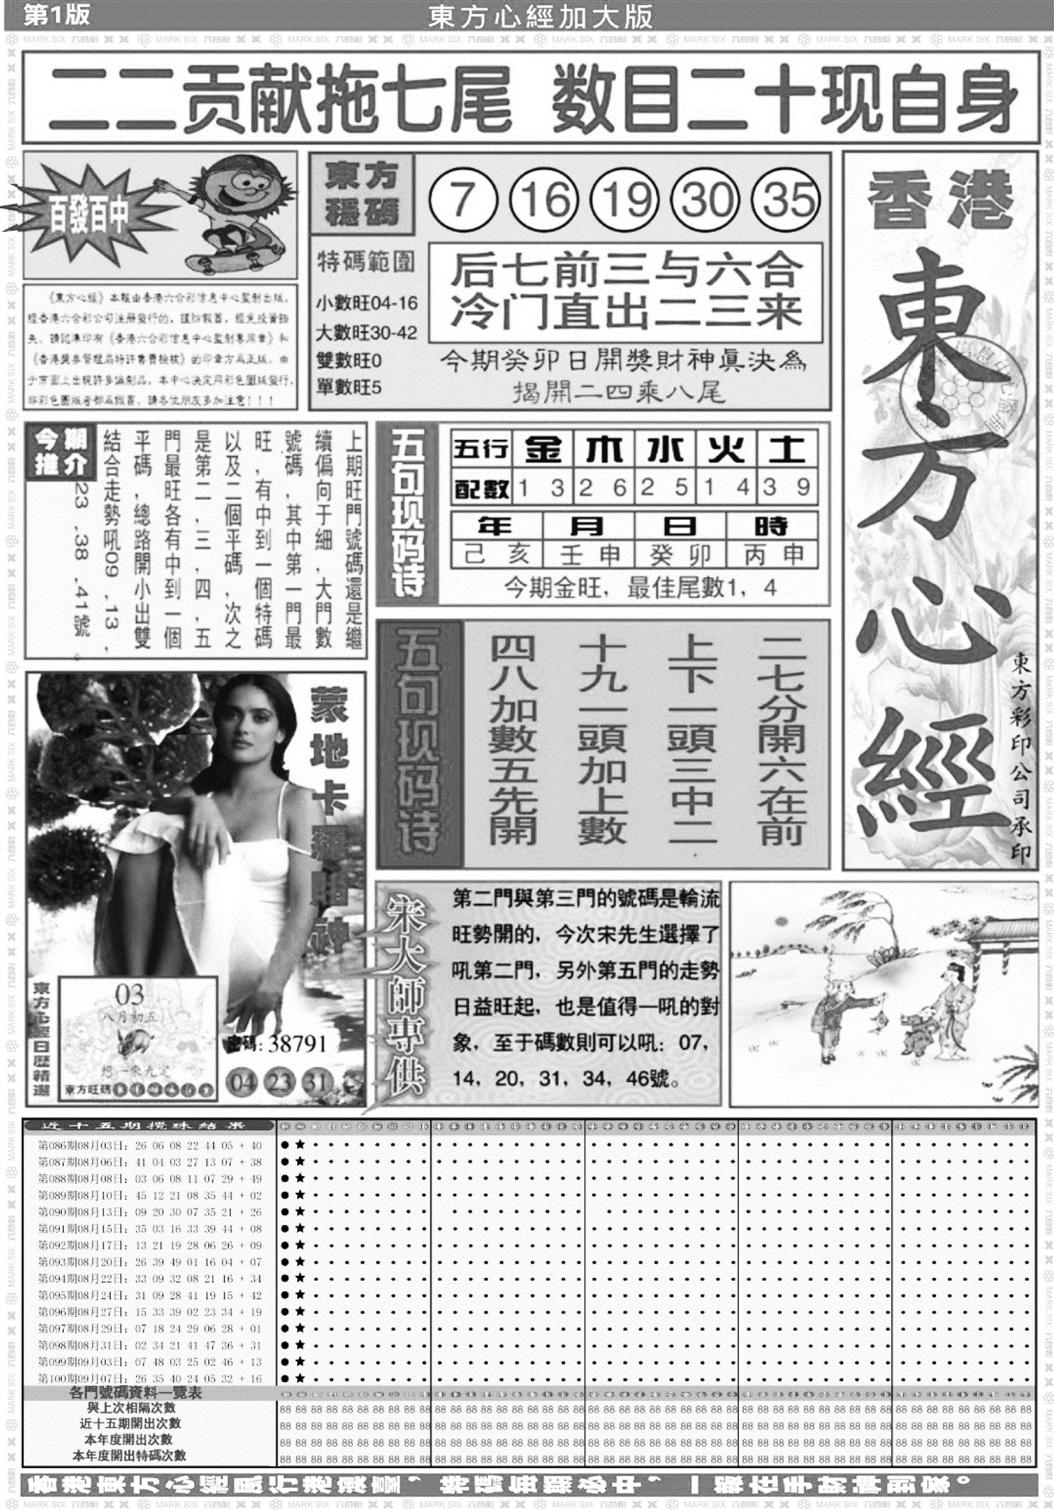 第1版
東方心經加大版
二二贡献拖七尾 数目二十现自身
百發百中
《東方心經》本報由香港六合彩信息中心監制出版，
經香港六合彩公司注册發行的，謹防假冒，避免投資損
失。請認準印有《香港六合彩信息中心監制專用章》和
《香港獎券管理局特許書費檢核》的印章方爲正版。由
于市面上出現許多僞制品，本中心決定用彩色圖版發行，
非彩色圖版者都爲假冒，請各位朋友多加注意！！！
東方
穩碼
7 16 19 30 35
特碼範圍
小數旺04-16
大數旺30-42
雙數旺0
單數旺5
后七前三与六合
冷门直出二三来
今期癸卯日開獎財神眞決為
揭開二四乘八尾
香港
東方心經
東方彩印公司承印
今期
推介
上期旺門號碼還是繼
續偏向于細，大門數
號碼，其中第一門最
旺，有中到一個特碼
以及二個平碼，次之
是第二，三，四，五
門最旺各有中到一個
平碼，總路開小出雙
結合走勢吼09，13，
23，38，41號。
五句现码诗
五行 金 木 水 火 土
配數 1 3 2 6 2 5 1 4 3 9
年 月 日 時
己亥 壬申 癸卯 丙申
今期金旺，最佳尾數1，4
五句现码诗
二七分開六在前
上下一頭三中二
十九一頭加上數
四八加數五先開
蒙地卡羅賭神
東方心經日歷精選
03
八月初五
想一來九定
東方旺碼
密碼:38791
04 23 31
宋大師專供
第二門與第三門的號碼是輪流
旺勢開的，今次宋先生選擇了
吼第二門，另外第五門的走勢
日益旺起，也是值得一吼的對
象，至于碼數則可以吼：07，
14，20，31，34，46號。
近十五期攪珠結果
第086期08月03日：26 06 08 22 44 05 + 40
第087期08月06日：41 04 03 27 13 07 + 38
第088期08月08日：03 06 08 11 07 29 + 49
第089期08月10日：45 12 21 08 35 44 + 02
第090期08月13日：09 20 30 07 35 21 + 26
第091期08月15日：35 03 16 33 39 44 + 08
第092期08月17日：13 21 19 28 06 26 + 09
第093期08月20日：26 39 49 01 16 04 + 07
第094期08月22日：33 09 32 08 21 16 + 34
第095期08月24日：31 09 28 41 19 15 + 42
第096期08月27日：15 33 39 02 23 34 + 19
第097期08月29日：07 18 24 29 06 28 + 01
第098期08月31日：02 34 21 41 47 36 + 31
第099期09月03日：07 48 03 25 02 46 + 13
第100期09月07日：26 35 40 24 05 32 + 16
各門號碼資料一覽表
與上次相隔次數
近十五期開出次數
本年度開出次數
本年度開出特碼次數
香港東方心經風行港澳臺，特碼每期必中，一報在手財神到家。